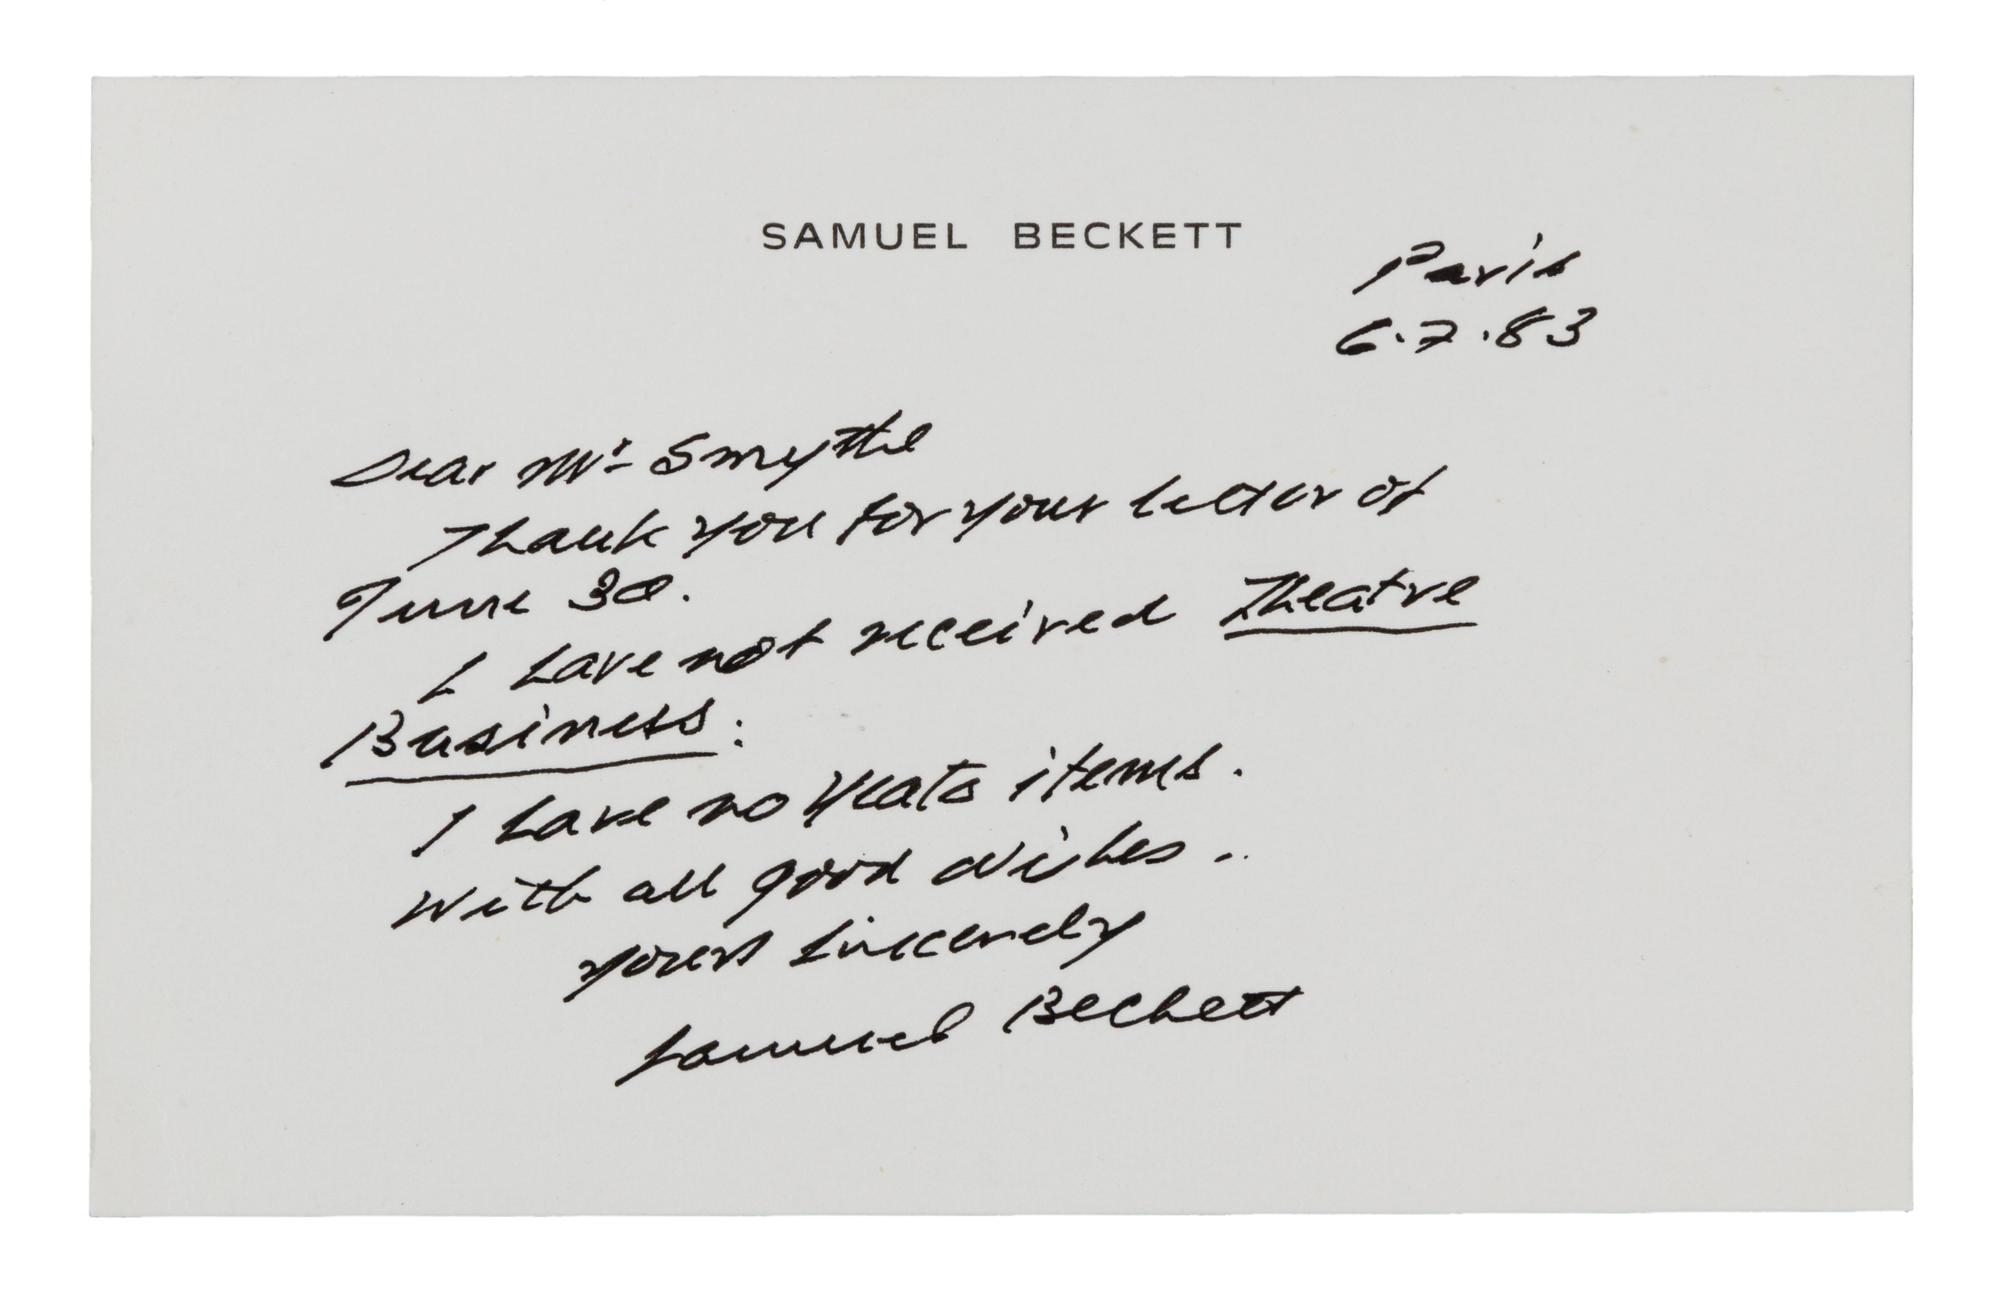 SAMUEL BECKETT
Paris
6.7.83
Dear Mr Smythe
Thank you for your letter of
June 30.
I have not received Theatre
Business.
I have no Yeats items.
With all good wishes.
Yours sincerely
Samuel Beckett